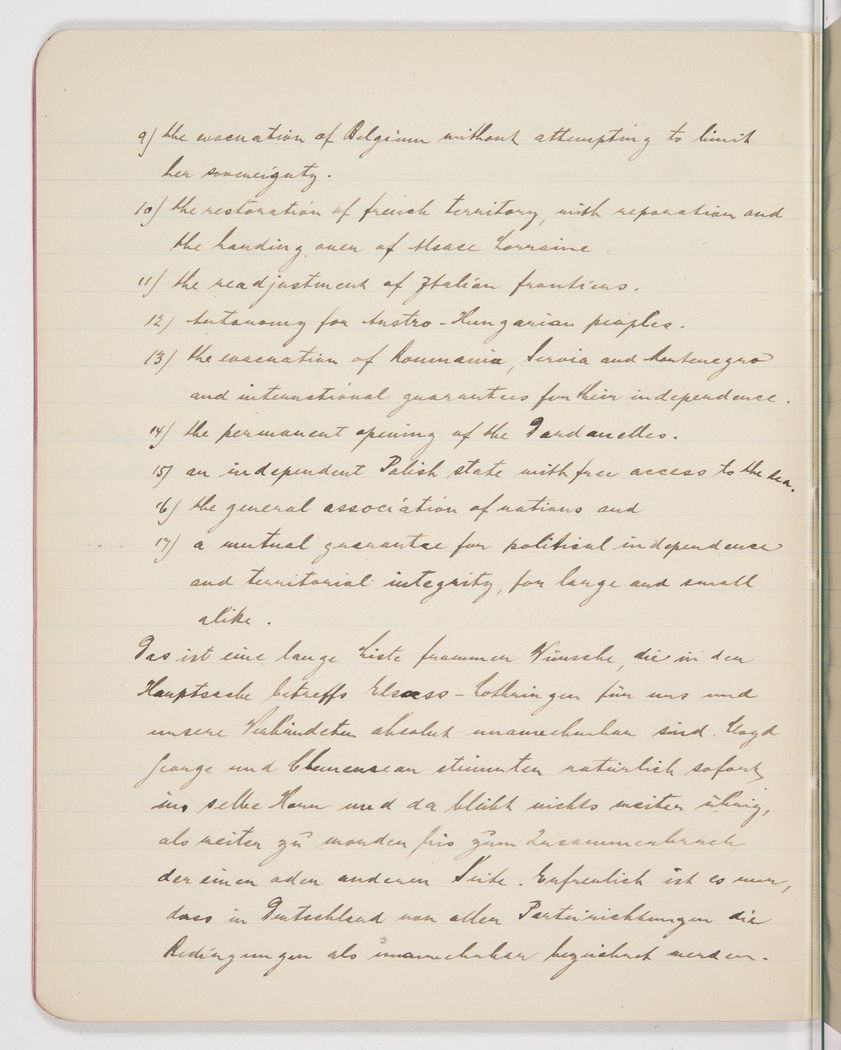 9) the evacuation of Belgium without attempting to limit
her sovereignty.
10) the restoration of french territory, with reparation and
the handing over of Alsace Lorraine.
11) the readjustment of Italian frontiers.
12) Autonomy for Austro-Hungarian peoples.
13) the evacuation of Roumania, Servia and Montenegro
and international guarantees for their independence.
14) the permanent opening of the Dardanelles.
15) an independent Polish state with free access to the sea.
16) the general association of nations and
17) a mutual guarantee for political independence
and territorial integrity, for large and small
alike.
Das ist eine lange Liste frommer Wünsche, die in der
Hauptsache betreffs Elsass-Lothringen für uns und
unsere Verbündeten absolut unannehmbar sind. Lloyd
George und Clemenceau stimmten natürlich sofort
ins selbe Horn und da bleibt nichts weiter übrig,
als weiter zu morden bis zum Zusammenbruch
der einen oder anderen Seite. Erfreulich ist es nur,
dass in Deutschland von allen Parteirichtungen die
Bedingungen als unannehmbar bezeichnet werden.